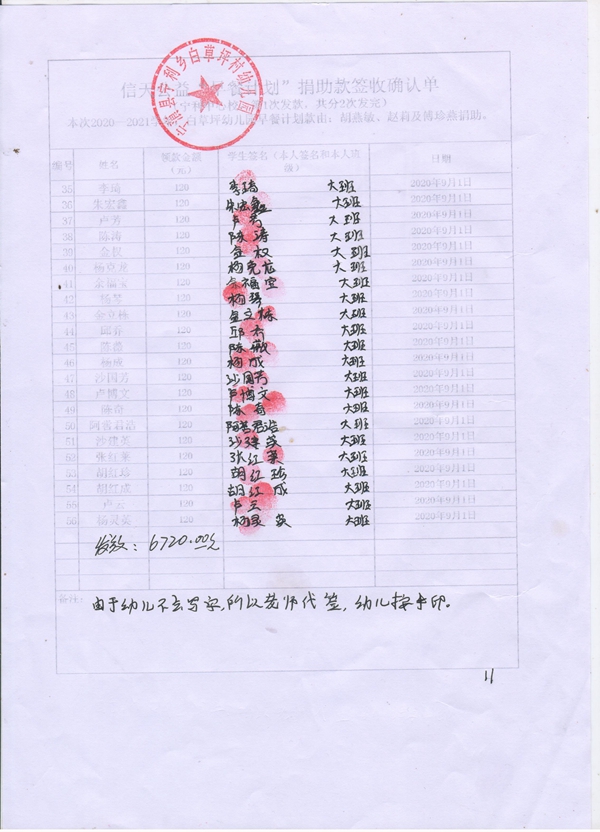 宁蒗县宁利乡白草坪村幼儿园
捐助款签收确认单
本次2020—2021学 白草坪幼儿园早餐计划款由：胡燕敏、赵莉及博珍燕捐助。
编号 姓名 领款金额（元） 学生签名（本人签名和本人 日期
35 李琦 120 李琦 大班 2020年9月1日
36 朱宏鑫 120 朱宏鑫 大班 2020年9月1日
37 卢芳 120 卢芳 大班 2020年9月1日
38 陈涛 120 陈涛 大班 2020年9月1日
39 金权 120 金权 大班 2020年9月1日
40 杨克龙 120 杨克龙 大班 2020年9月1日
41 余福宝 120 余福宝 大班 2020年9月1日
42 杨琴 120 杨琴 大班 2020年9月1日
43 金立栋 120 金立栋 大班 2020年9月1日
44 邱乔 120 邱乔 大班 2020年9月1日
45 陈薇 120 陈薇 大班 2020年9月1日
46 杨成 120 杨成 大班 2020年9月1日
47 沙国芳 120 沙国芳 大班 2020年9月1日
48 卢博文 120 卢博文 大班 2020年9月1日
49 陈奇 120 陈奇 大班 2020年9月1日
50 阿普君浩 120 阿普君浩 大班 2020年9月1日
51 沙建英 120 沙建英 大班 2020年9月1日
52 张红 120 张红 大班 2020年9月1日
53 胡红 120 胡红 大班 2020年9月1日
54 胡红成 120 胡红成 大班 2020年9月1日
55 卢云 120 卢云 大班 2020年9月1日
56 杨灵英 120 杨灵英 大班 2020年9月1日
发放：6720.00元
备注：
由于幼儿不会写字，所以老师代签，幼儿按手印。
11